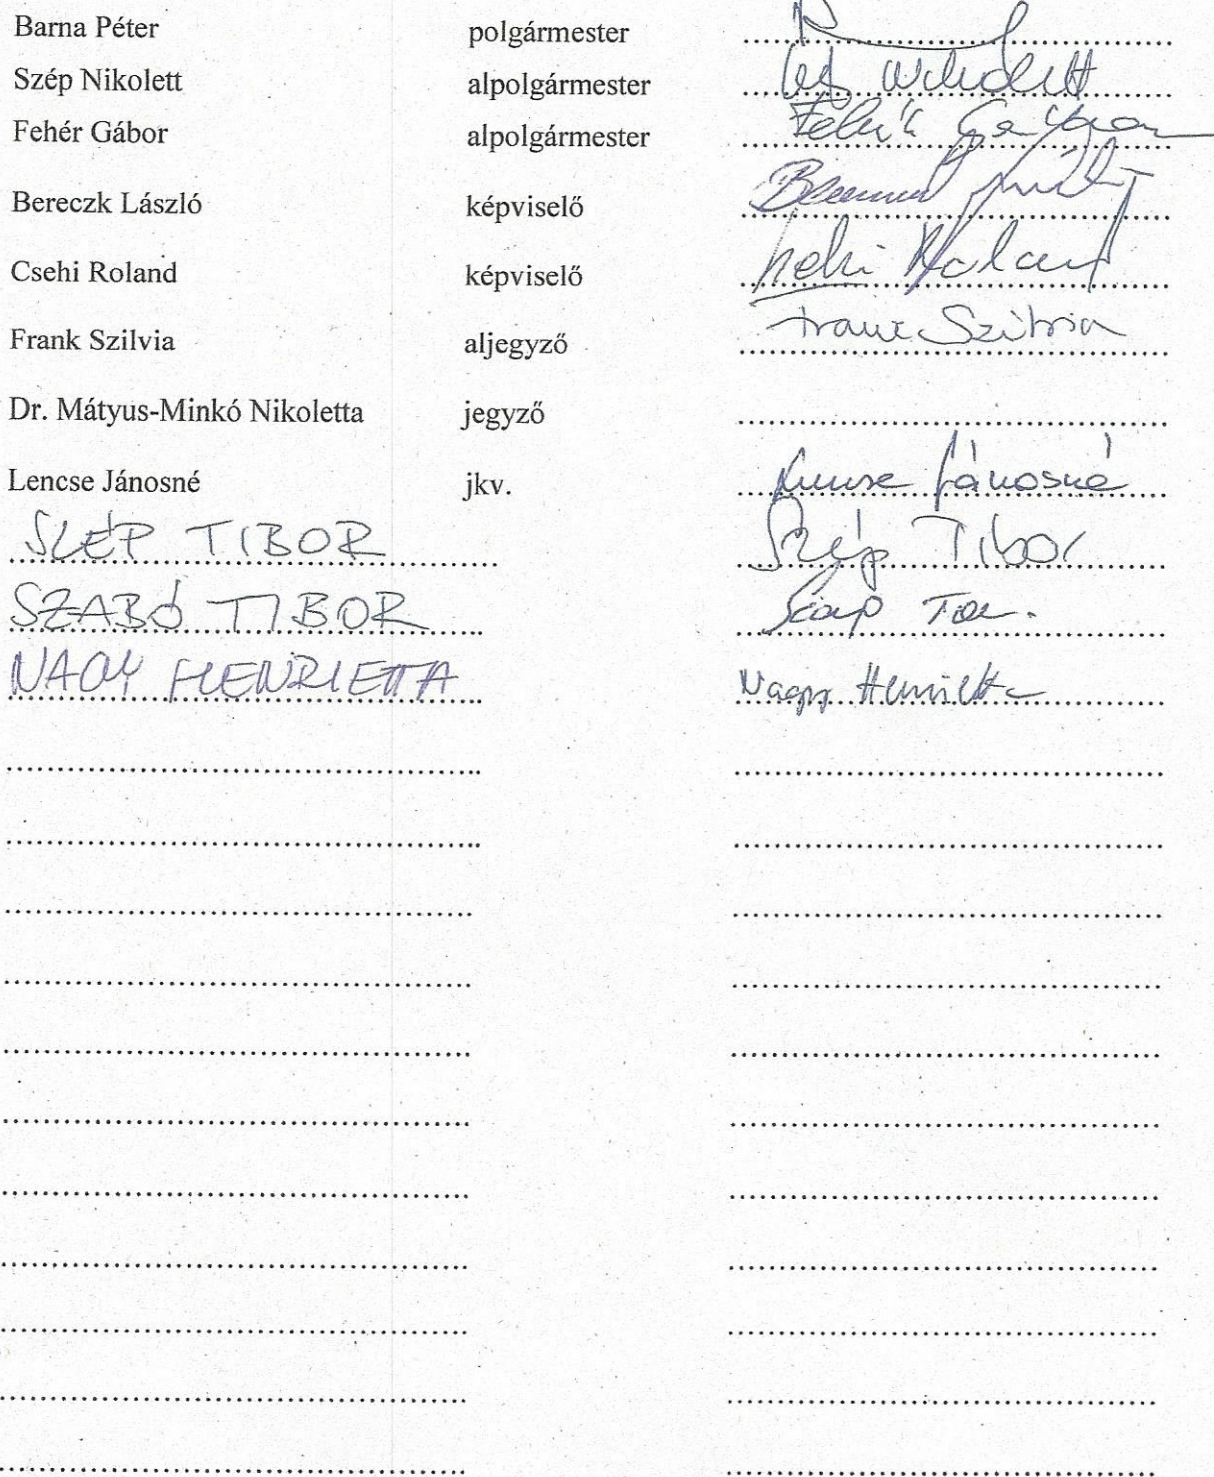 Barna Péter polgármester
Szép Nikolett alpolgármester
Fehér Gábor alpolgármester
Bereczk László képviselő
Csehi Roland képviselő
Frank Szilvia aljegyző Frank Szilvia
Dr. Mátyus-Minkó Nikoletta jegyző
Lencse Jánosné jkv. Lencse Jánosné
SZÉP TIBOR Szép Tibor
SZABÓ TIBOR
NAGY HENRIETTA Nagy Henrietta